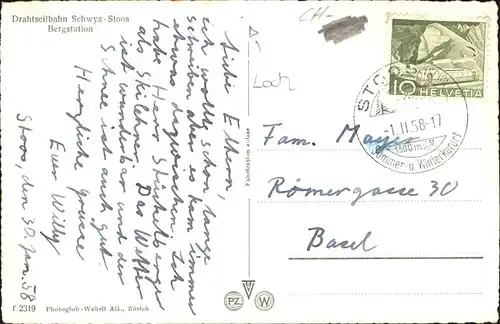 Drahtseilbahn Schwyz-Stoos
Bergstation
Liebe Eltern,
ich wollte schon lange
schreiben aber es kam immer
etwas dazwischen. Ich
habe Herr
als Skilehrer. Das Wetter
ist wunderbar und der
Schnee ist auch gut.
Herzliche grüsse
Euer Willy
Stoos, den 30. Jan. 58
f 2319 Photoglob-Wehrli AG., Zürich
PZ
W
CH-
Loch
10 HELVETIA
STOOS
-1.II.58-17
1300 m ü.M.
Sommer- u. Winterkurort
Fam. Mayer
Römergasse 30
Basel